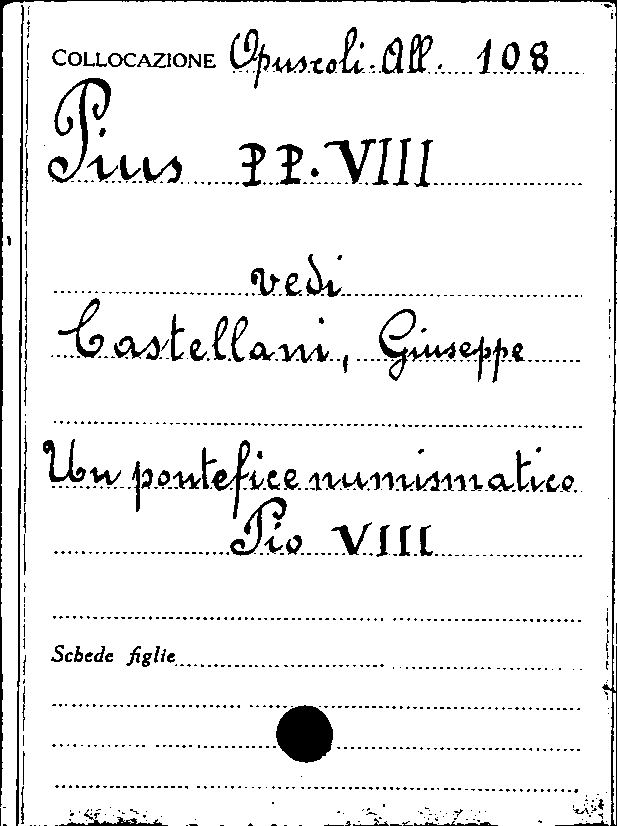 COLLOCAZIONE Opuscoli. All. 108
Pius PP. VIII
vedi
Castellani, Giuseppe
Un pontefice numismatico
Pio VIII
Schede figlie